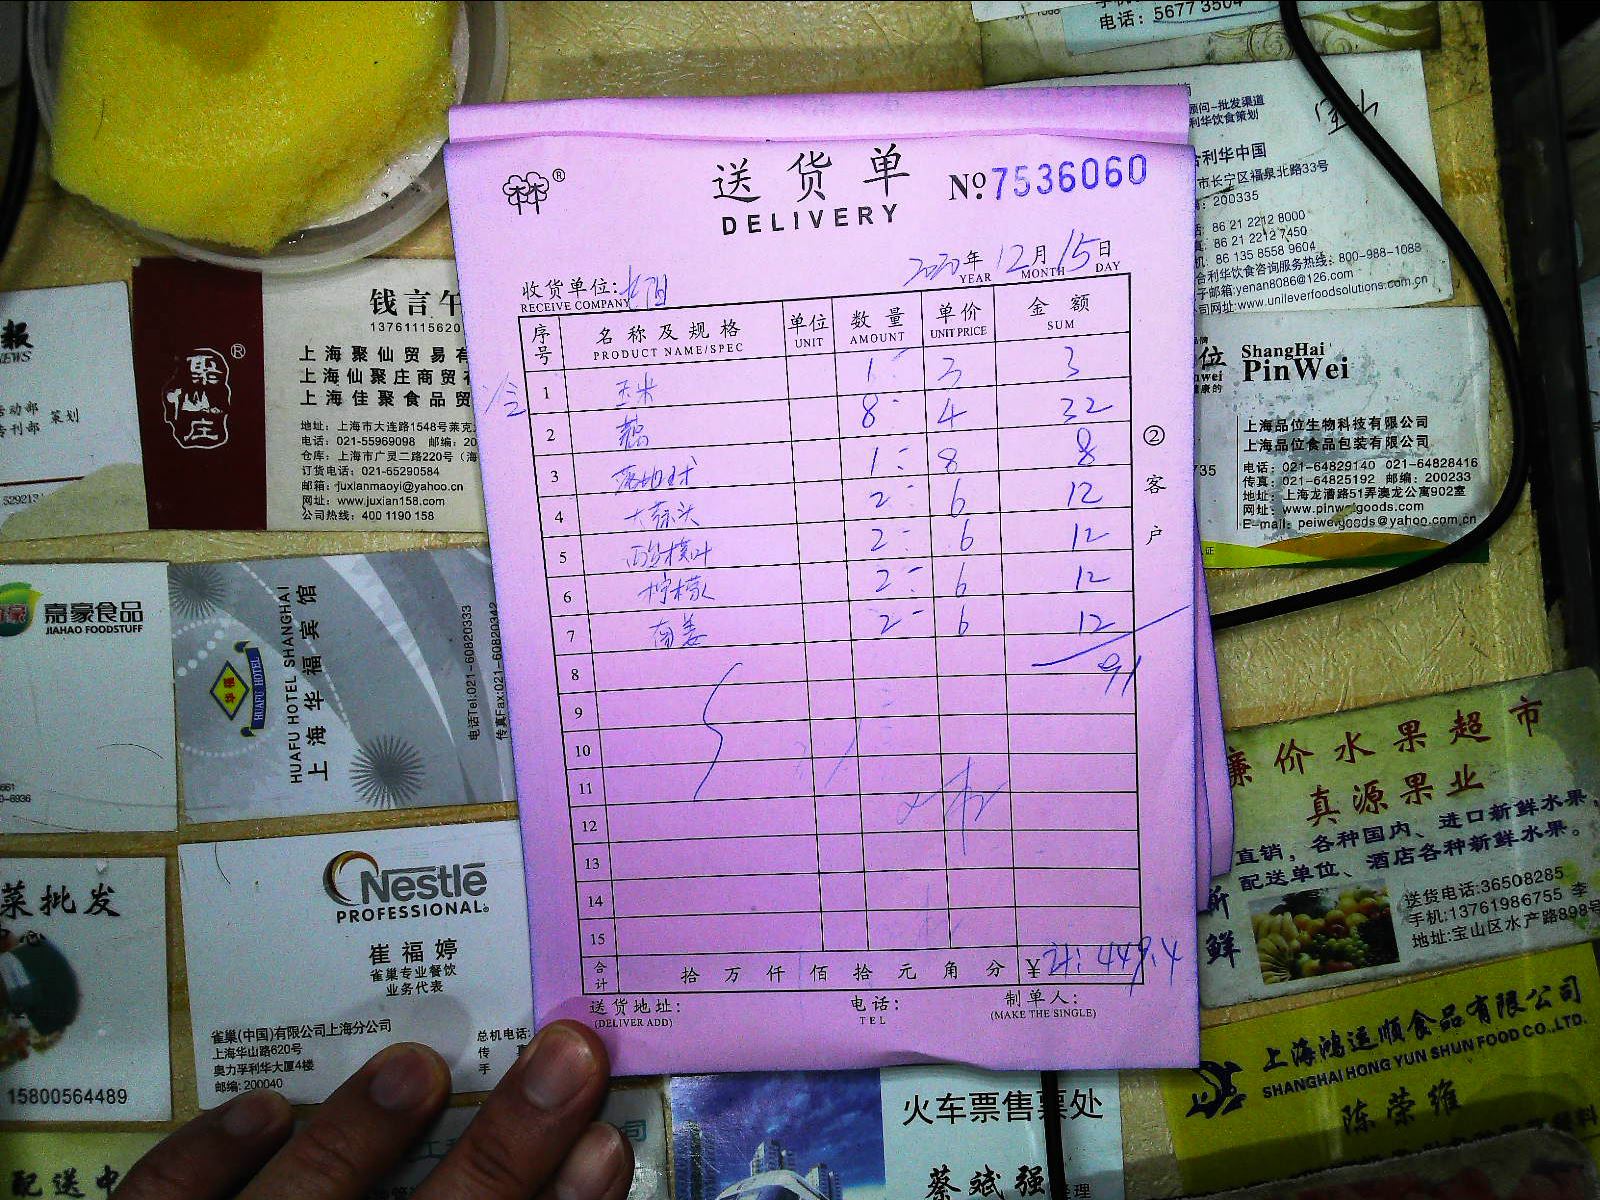 电话: 5677 3504
顾问-批发渠道
利华饮食策划
合利华中国
市长宁区福泉北路33号
: 200335
: 86 21 2212 8000
真. 86 21 2212 7450
机. 86 135 8558 9604
合利华饮食咨询服务热线: 800-988-1088
子邮箱:yenan8086@126.com
司网址:www.unileverfoodsolutions.com.cn
送货单
DELIVERY
®
No. 7536060
2020年 12月 15日
YEAR MONTH DAY
收货单位:
RECEIVE COMPANY
序号 名称及规格 单位 数量 单价 金额
PRODUCT NAME/SPEC UNIT AMOUNT UNIT PRICE SUM
1 玉米 1 3 3
2 8 4 32
3 1 8 8
4 大蒜头 2 6 12
5 2 6 12
6 柠檬 2 6 12
7 南姜 2 6 12
8 91
9
10
11
12
13
14
15
合计 拾万仟佰拾元角分 ¥ 计: 449.4
送货地址: 电话: 制单人:
(DELIVER ADD) TEL (MAKE THE SINGLE)
② 客户
钱言午
13761115620
聚仙庄®
上海聚仙贸易有
上海仙聚庄商贸
上海佳聚食品贸
地址: 上海市大连路1548号莱克
电话: 021-55969098 邮编: 20
仓库: 上海市广灵二路220号 (海
订货电话: 021-65290584
邮箱: juxianmaoyi@yahoo.cn
网址: www.juxian158.com
公司热线: 400 1190 158
报
NEWS
活动部 策划
专刊部
ShangHai
PinWei
上海品位生物科技有限公司
上海品位食品包装有限公司
电话: 021-64829140 021-64828416
传真: 021-64825192 邮编: 200233
地址: 上海龙漕路51弄澳龙公寓902室
网址: www.pinweigoods.com
E-mail: peiweigoods@yahoo.com.cn
嘉豪食品
JIAHAO FOODSTUFF
华福
HUAFU HOTEL
HUAFU HOTEL SHANGHAI
上海华福宾馆
电话Tel:021-60820333
传真Fax:021-60820342
廉价水果超市
真源果业
直销, 各种国内、进口新鲜水果,
配送单位、酒店各种新鲜水果。
新鲜
送货电话:36508285
手机:13761986755 李
地址:宝山区水产路898号
菜批发
中心
15800564489
Nestlé
PROFESSIONAL
崔福婷
雀巢专业餐饮
业务代表
雀巢(中国)有限公司上海分公司
上海华山路620号
奥力孚利华大厦4楼
邮编: 200040
总机电话:
传 真
手
上海鸿运顺食品有限公司
SHANGHAI HONG YUN SHUN FOOD CO.,LTD.
陈荣维
火车票售票处
蔡斌强 经理
配送中